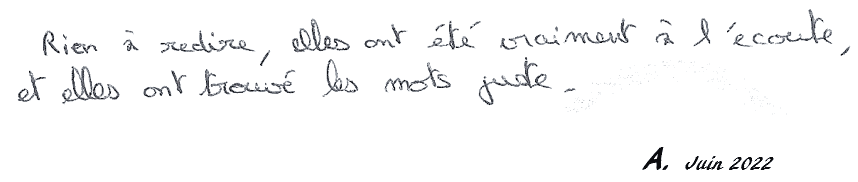 Rien à redire, elles ont été vraiment à l'écoute,
et elles ont trouvé les mots juste.
A. Juin 2022